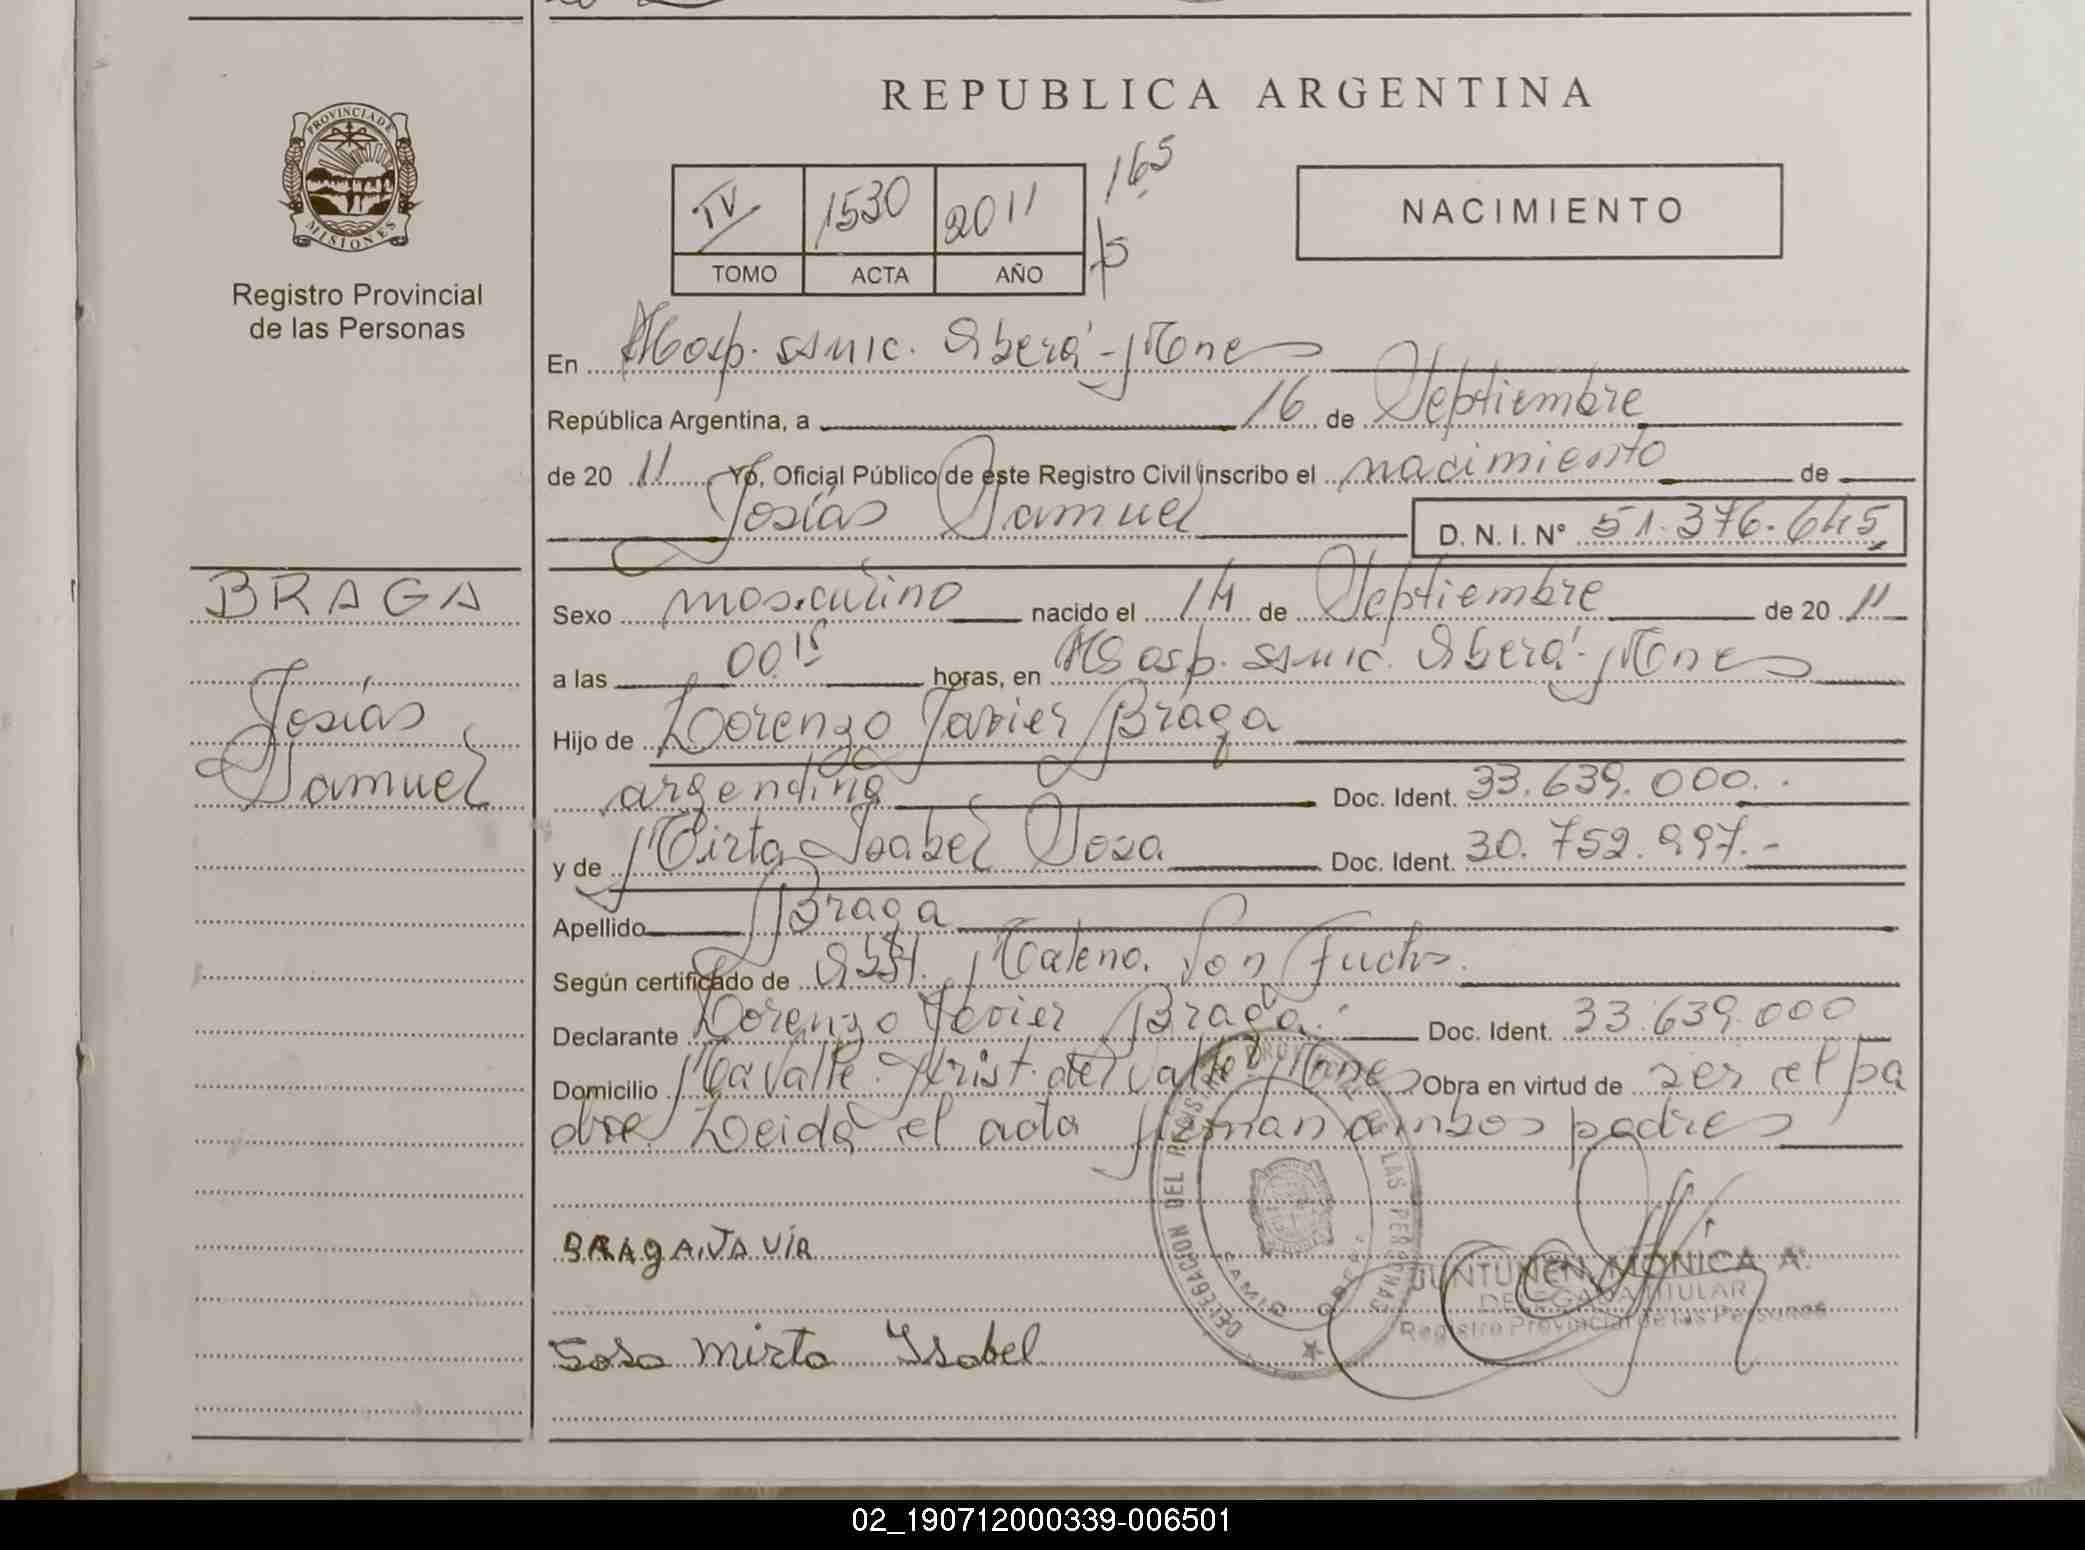 REPUBLICA ARGENTINA
PROVINCIA DE
MISIONES
Registro Provincial
de las Personas
IV 1530 2011 165
TOMO ACTA AÑO 5
NACIMIENTO
En Hosp. SSMIC. Oberá - Mnes
República Argentina, a 16 de Septiembre
de 20 11 Yo, Oficial Público de este Registro Civil inscribo el nacimiento de
Josías Samuel D. N. I. N° 51.376.645
BRAGA
Josías
Samuel
Sexo masculino nacido el 14 de Septiembre de 20 11
a las 00 15 horas, en Hosp. SSMIC. Oberá - Mnes
Hijo de Lorenzo Javier Braga
argentino Doc. Ident. 33.639.000.-
y de Mirta Isabel Sosa Doc. Ident. 30.752.997.-
Apellido Braga
Según certificado de Obst. Von Fuchs.
Declarante Lorenzo Javier Braga.- Doc. Ident. 33.639.000
Domicilio Arist. del Valle Mnes Obra en virtud de ser el pa
dre Leida el acta firman ambos padres
BRAgA JAVIR
Sosa Mirta Isabel
DELEGACION DEL REGISTRO PROVINCIAL DE LAS PERSONAS
OBERA
JUNTUNEN, MONICA A.
DELEGADA TITULAR
Registro Provincial de las Personas
02_190712000339-006501